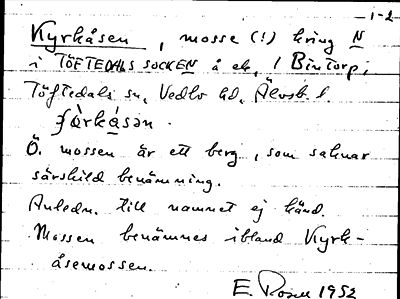 1-2
Kyrkåsen, mosse (!) kring N
i TÖFTEDALS SOCKEN å ek, / Bintorp;
Töftedals sn, Vedbo hd, Älvsb. l.
Ö. mossen är ett berg, som saknar
särskild benämning.
Anledn. till namnet ej känd.
Mossen benämnes ibland Kyrk-
åsemossen.
E. Rosell 1952